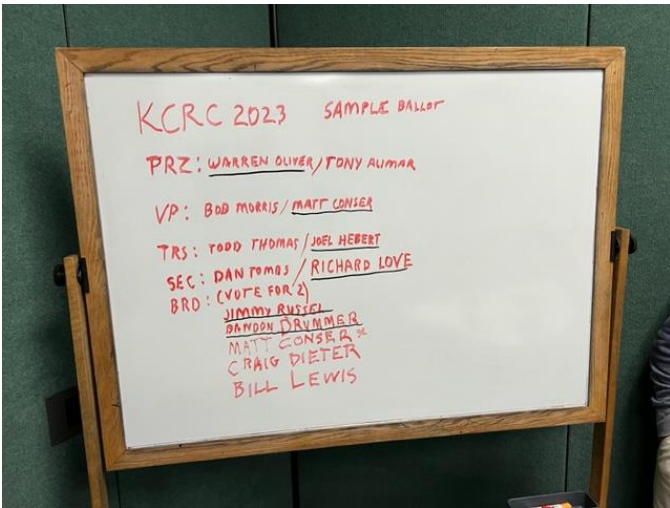 KCRC 2023 SAMPLE BALLOT
PRZ: WARREN OLIVER/TONY ALIMAR
VP: BOB MORRIS/MATT CONSER
TRS: TODD THOMAS/JOEL HEBERT
SEC: DAN TOMBS/RICHARD LOVE
BRD: (VOTE FOR 2)
JIMMY RUSSEL
DANDON DRUMMER
MATT CONSER*
CRAIG DIETER
BILL LEWIS